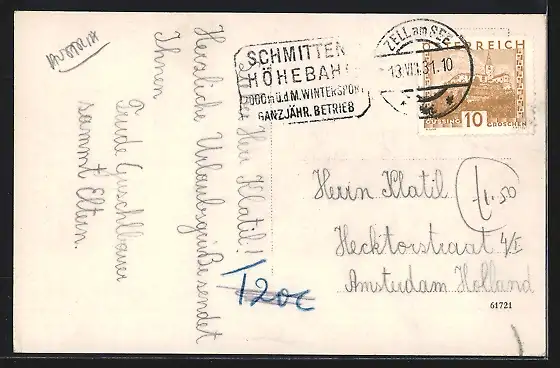 AUSTRIA
SCHMITTEN
HÖHEBAHN
2000 m ü.d.M. WINTERSPORT
GANZJÄHR. BETRIEB
ZELL am SEE
13.VIII.31.10
ÖSTERREICH
10
GROSCHEN
Lieber Herr Klatil!
Herzliche Urlaubsgrüße sendet
Ihnen
Trude Guschlbauer
sammt Eltern.
Herrn Klatil
Hecktorstraat 4/I
Amsterdam Holland
1.50
T20c
61721